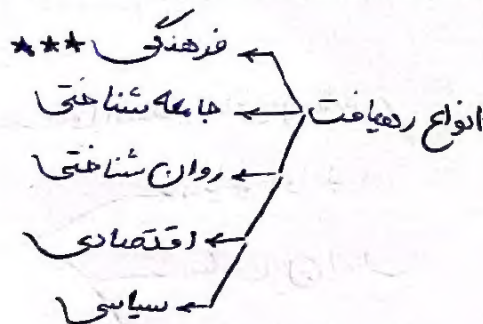 انواع رهیافت
فرهنگی ***
جامعه شناختی
روان شناختی
اقتصادی
سیاسی